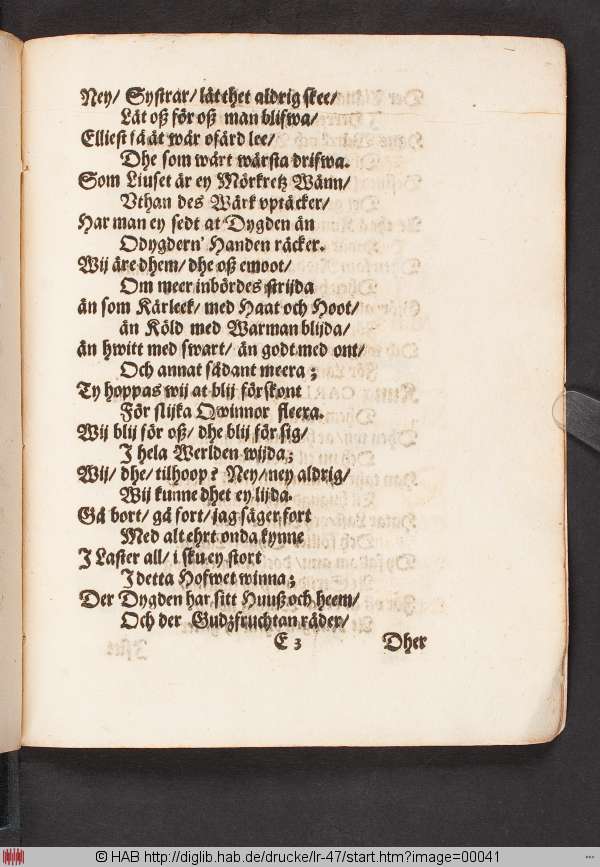 Ney/ Systrar/ lät thet aldrig skee/
Lät oß för oß man blifwa/
Elliest sä ät wår ofärd lee/
Dhe som wårt wärsta drifwa.
Som Liuset är ey Mörkretz Wänn/
Vthan des Wärk vptäcker/
Har man ey sedt at Dygden än
Odygdern' Handen räcker.
Wij äre dhem/ dhe oß emoot/
Om meer inbördes strijda
än som Kärleek/ med Haat och Hoot/
än Köld med Warman blijda/
än hwitt med swart/ än godt med ont/
Och annat sådant meera;
Ty hoppas wij at blij förskont
För slijka Qwinnor fleera.
Wij blij för oß/ dhe blij för sig/
I hela Werlden wijda;
Wij/ dhe/ tilhoop? Ney/ ney aldrig/
Wij kunne dhet ey lijda.
Gå bort/ gå fort/ jag säger fort
Med alt ehrt onda kynne
I Laster all/ i sku ey stort
I detta Hofwet winna;
Der Dygden har sitt Huuß och heem/
Och der Gudzfruchtan råder/
E 3 Dher
© HAB http://diglib.hab.de/drucke/lr-47/start.htm?image=00041